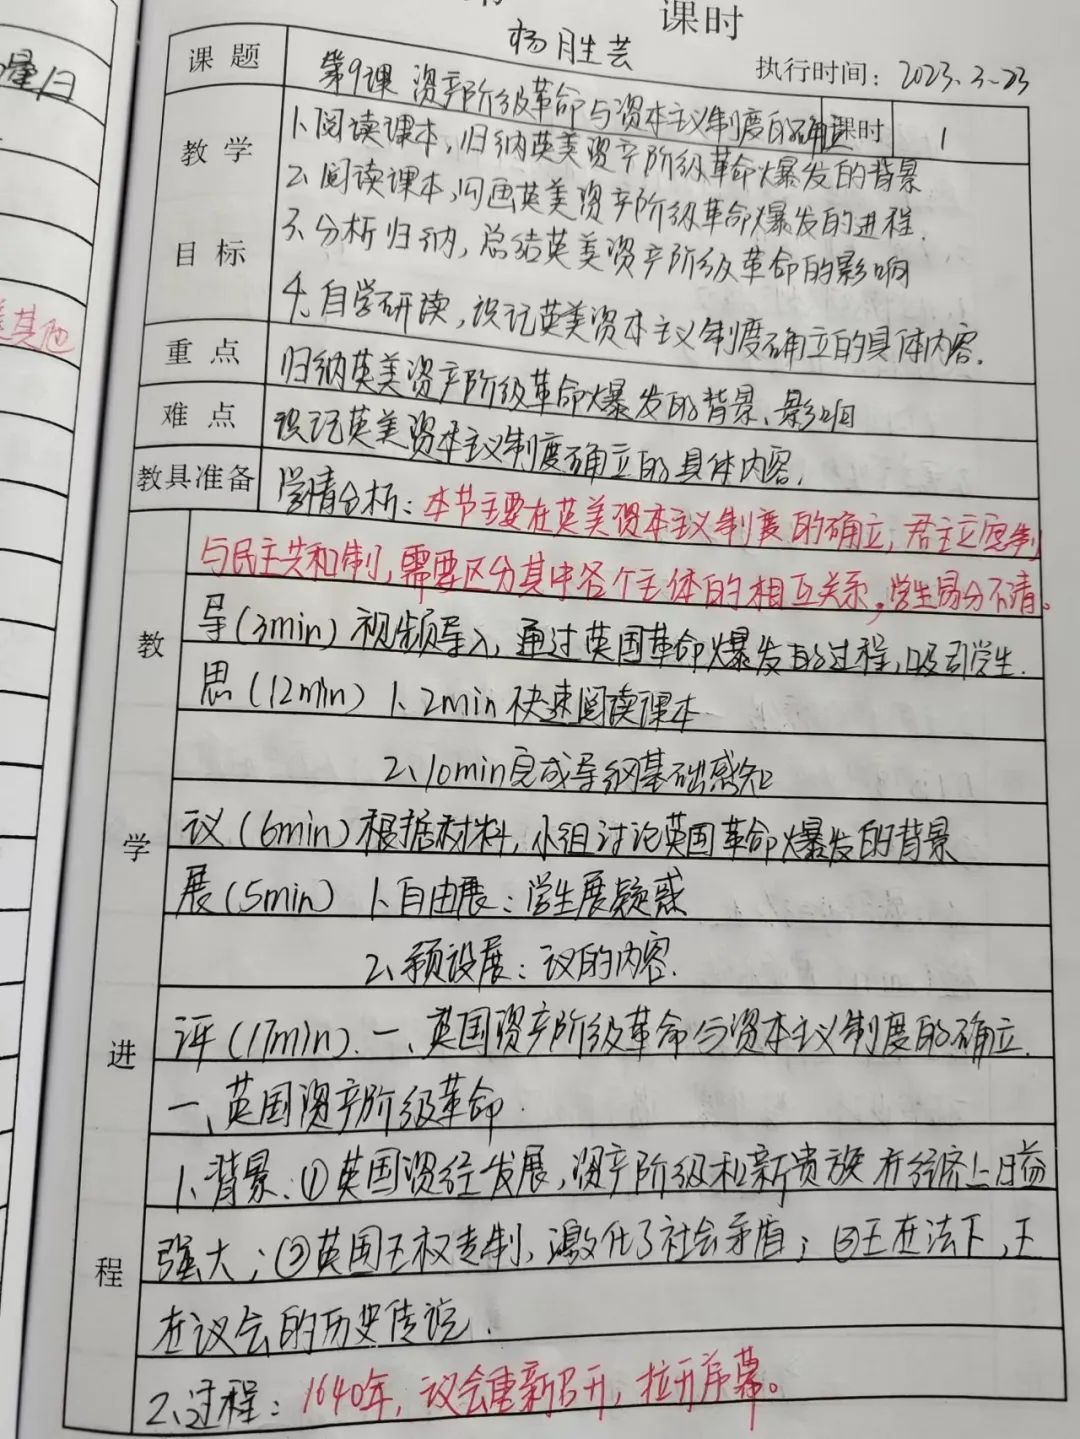 课时
杨胜芸
执行时间：2023.3-23
课题 第9课 资产阶级革命与资本主义制度的确立 课时 1
教学目标
1、阅读课本，归纳英美资产阶级革命爆发的背景
2、阅读课本，勾画英美资产阶级革命爆发的进程.
3、分析归纳，总结英美资产阶级革命的影响
4、自学研读，识记英美资本主义制度确立的具体内容.
重点 归纳英美资产阶级革命爆发的背景、影响
难点 识记英美资本主义制度确立的具体内容.
教具准备 学情分析：本节主要在英美资本主义制度的确立，君主立宪制
与民主共和制，需要区分其中各个主体的相互关系，学生易分不清。
教学进程
导(3min) 视频导入，通过英国革命爆发的过程，吸引学生.
思(12min) 1、2min快速阅读课本
2、10min完成导纲基础感知
议(6min)根据材料，小组讨论英国革命爆发的背景
展(5min) 1、自由展：学生展疑惑
2、预设展：议的内容.
评(17min). 一、英国资产阶级革命与资本主义制度的确立.
一、英国资产阶级革命.
1、背景：①英国资经发展，资产阶级和新贵族在经济上日益
强大；②英国王权专制，激化了社会矛盾；③王在法下，王
在议会的历史传说.
2、过程：1640年，议会重新召开，拉开序幕。
星期
其他